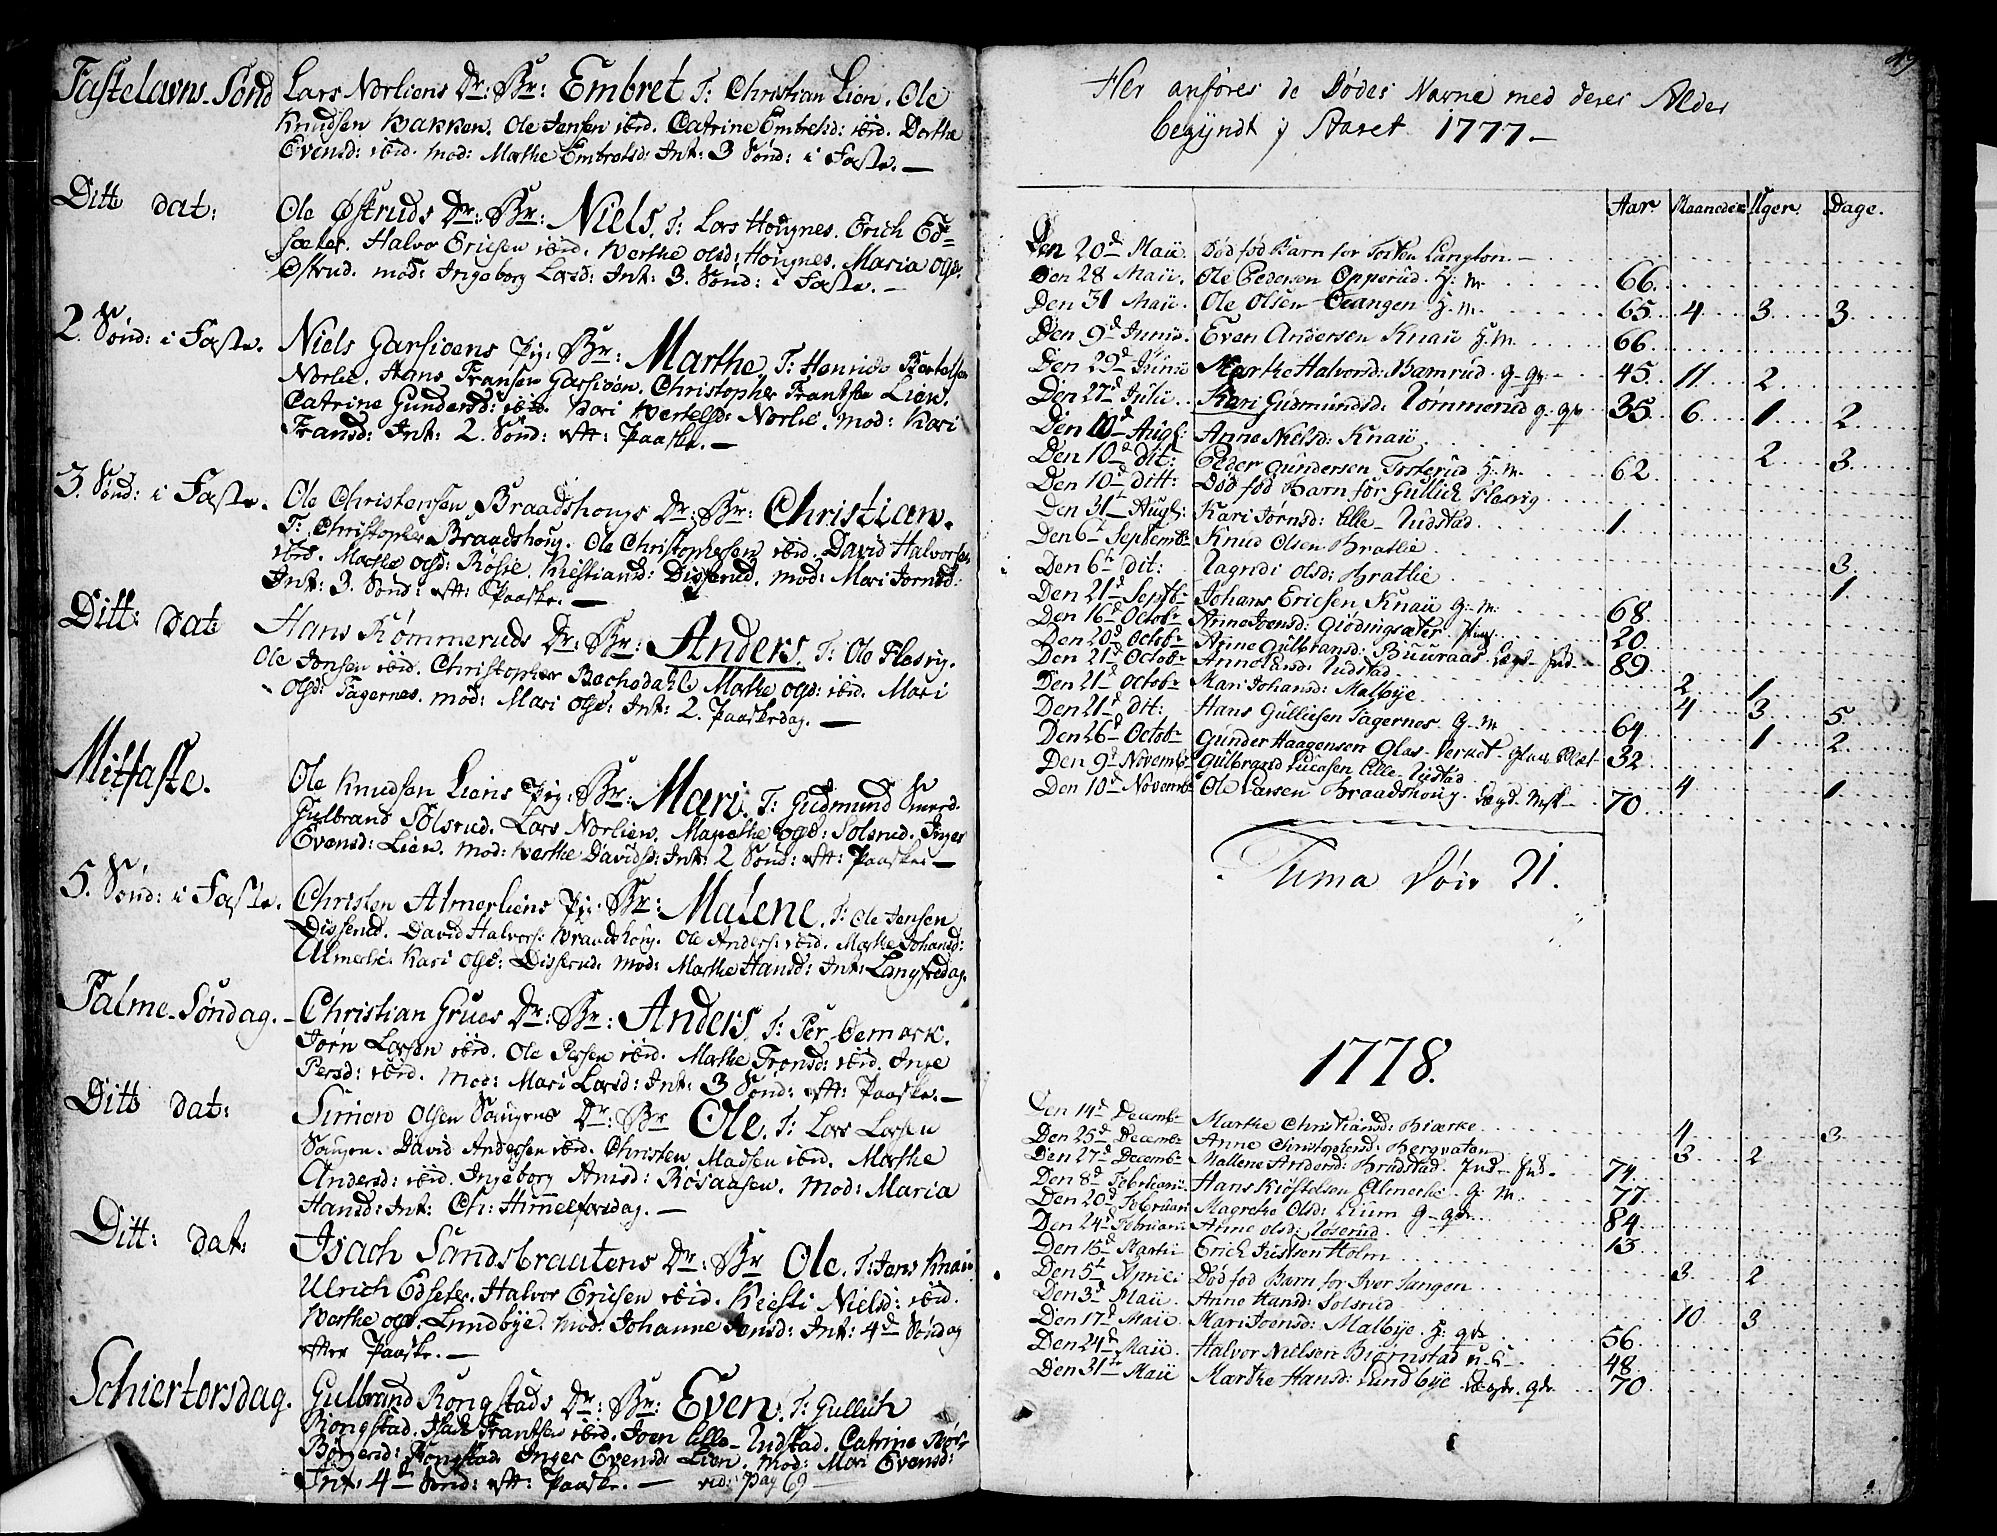 Fastelavns-Sønd Lars Norliens Dr: Br: Embret T: Christian Lien. Ole
Knudsen Bakken. Ole Jensen ibid. Catrine Embretsd: ibid. Dorthe
Evensd: ibid. mod: Marthe Embretsd: Int: 3 Sönd: i Faste. —
Ditto dat: Ole Østruds Dr: Br: Niels. T: Lars Hougnes. Erich Ed=
sæter. Halvor Ericsen ibid. Berthe Olsd: Hougnes. Maria Olsd:
Østrud. mod: Ingeborg Larsd: Int: 3. Sönd: i Faste. —
2. Sönd: i Faste. Niels Garsioens Pig: Br: Marthe. T: Henrich Bertelsen
Norlie. Hans Fransen Garsiöen. Christopher Frantsen Lien.
Catrine Gundersd: ibid. Kari Bertelsd: Norlie. mod: Kari
Fransd: Int: 2. Sönd: eft: Paaske. —
3. Sönd: i Faste. Ole Christensen Braadshougs Dr: Br: Christian.
T: Christopher Braadshoug. Ole Christophersen ibid. David Halvorsen
ibid. Marthe Olsd: Rösie. Kiestiansd: Disserud. mod: Mari Jörnsd:
Int: 3. Sönd: eft: Paaske. —
Ditt: dat: Hans Römmeruds Dr: Br: Anders. T: Ole Flesvig.
Ole Jonsen ibid. Christopher Bechedahl Marthe Olsd: ibid. Mari
Olsd: Tagernes. mod: Mari Olsd: Int: 2. Paaskedag. —
Mitfaste. Ole Knudsen Liens Pig: Br: Mari. T: Gudmund Smerd.
Gulbrand Solsrud. Lars Norlien. Marethe Olsd: Solsrud. Inger
Evensd: Lien. mod: Berthe Davidsd: Int: 2 Sönd: eft: Paaske —
5. Sönd: i Faste. Christen Almerliens Pig: Br: Malene. T: Ole Jensen
Disserud. David Halvors: Braadshoug. Ole Anders: ibid. Marthe Johansd:
Almerlie. Kari Olsd: Disserud. mod: Marthe Hansd: Int: Langfredag.
Palme-Søndag. Christian Grues Dr: Br: Anders. T: Per Oemark.
Jörn Larsen ibid. Ole Persen ibid. Marthe Tronsd: ibid. Inge
Persd: ibid. mod: Mari Larsd: Int: 3 Sönd: eft: Paaske. —
Ditto dat: Simon Olsen Sougens Dr: Br Ole. T: Lars Larsen
Sougen. David Andersen ibid. Christen Madsen ibid. Marthe
Andersd: ibid. Ingeborg Amisd: Rösaasen. mod: Maria
Hansd: Int: Ch: Himmelfarsdag. —
Ditt: dat: Isach Sandsbrautens Dr: Br Ole. T: Jens Knai
Ulrich Edseter. Halvor Ericsen ibid. Kiesti Nielsd: ibid.
Berthe Olsd. Lundbye. mod: Johanne Jensd: Int: 4d Söndag
efter Paaske. —
Schiertorsdag. Gulbrand Rongstads Dr: Br: Even. T: Gullich
Rongstad. Isach Frantsen ibid. Joen Lille-Udstad. Catrine Bör-
Börgersd: Rongstad Inger Evensd: Lien. mod: Mari Evensd:
Int: 4d Sönd: eft: Paaske. — vid: Pag 69
49
Her anføres de Dødes Navne med deres Alder
begyndt i Aaret 1777 —
Aar. Maaneder Uger. Dage.
Den 20d Maii. Død fød Barn for Torsten Langton. —
Den 28 Maii. Ole Pedersen Opperud. G: M. 66.
Den 31 Maii. Ole Olsen Tangen G. M. 65 4 3 3
Den 9d Junii. Even Andersen Knaii G. M. 66
Den 29d Junii Marthe Halvorsd: Bamrud. G-Qv. 45. 11 2
Den 27d Julii. Kari Gudmundsd. Tömmerud G. Qv 35. 6 1 2
Den 10d Augs: Anne Nielsd: Knaii. 2 3
Den 10d dit: Peder Gundersen Tosterud G. M. 62
Den 10d ditt: Død fød Barn for Gullich Flesvig
Den 31t Augs: Kari Jörnsd: Lille-Udstad. 1.
Den 6t Septembr Knud Olsen Bratlie. 3
Den 6t dit: Ragndi Olsd: Bratlie 1
Den 21d Septbr Johans Ericsen Knaii G. M. 68.
Den 16d Octobr Anne Joensd: Giödingsæter. Pige. 20.
Den 20d Octobr Anne Gulbransd: Buuraas Lægd-Ind 89
Den 21d Octobr Anne Larsd: Udstad. 2 1
Den 21d Octobr Mari Johansd: Malbye. 4 3 5
Den 21d dit: Hans Gullicsen Tagernes. G. M 64 1 2
Den 26d Octobr Gunder Haagensen Glas-Verket Glas-Blæs- 32
Den 9d Novembr Gulbrand Lucasen Lille-Udstad 4 1
Den 10d Novembr Ole Larsen Braadshoug. Lægd. Msk— 70
Suma Döde 21.
1778.
Den 14d Decembr Marthe Christiansd: Biærke 4 3
Den 25d Decembr Anne Christophersd: Bergvaten 3 2
Den 27d Decembr Mallene Andersd: Brudstad. Ind-Ind. 74.
Den 8d Februarii. Hans Kiöstelsen Almerlie. G. M. 77.
Den 20d Februarii Magrethe Olsd: Lium G-Qv. 84.
Den 24d Februarii. Anne Olsd: Löserud. 13
Den 15d Martii Erich Justsen Holm 3 2
Den 5t Aprili Död fød Barn for Iver Tangen
Den 3d Maii. Anne Hansd: Solsrud 10 3
Den 17d Maii. Kari Joensd: Malbye. G: Qv. 56.
Den 24d Maii. Halvor Nielsen Biörnstad U.K— 48
Den 31te Maii Marthe Hansd: Lundbye Lægdr. Qv. 70